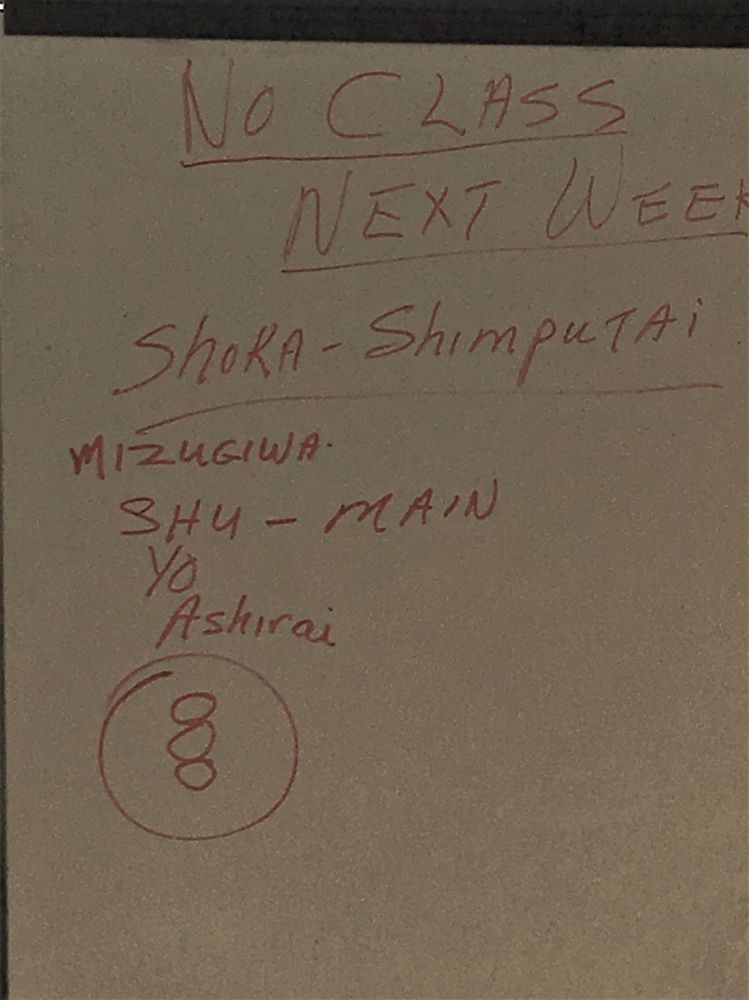 NO CLASS
NEXT WEEK
SHORA - ShimpuTAi
MIZUGIWA.
SHU - MAIN
YO
Ashirai